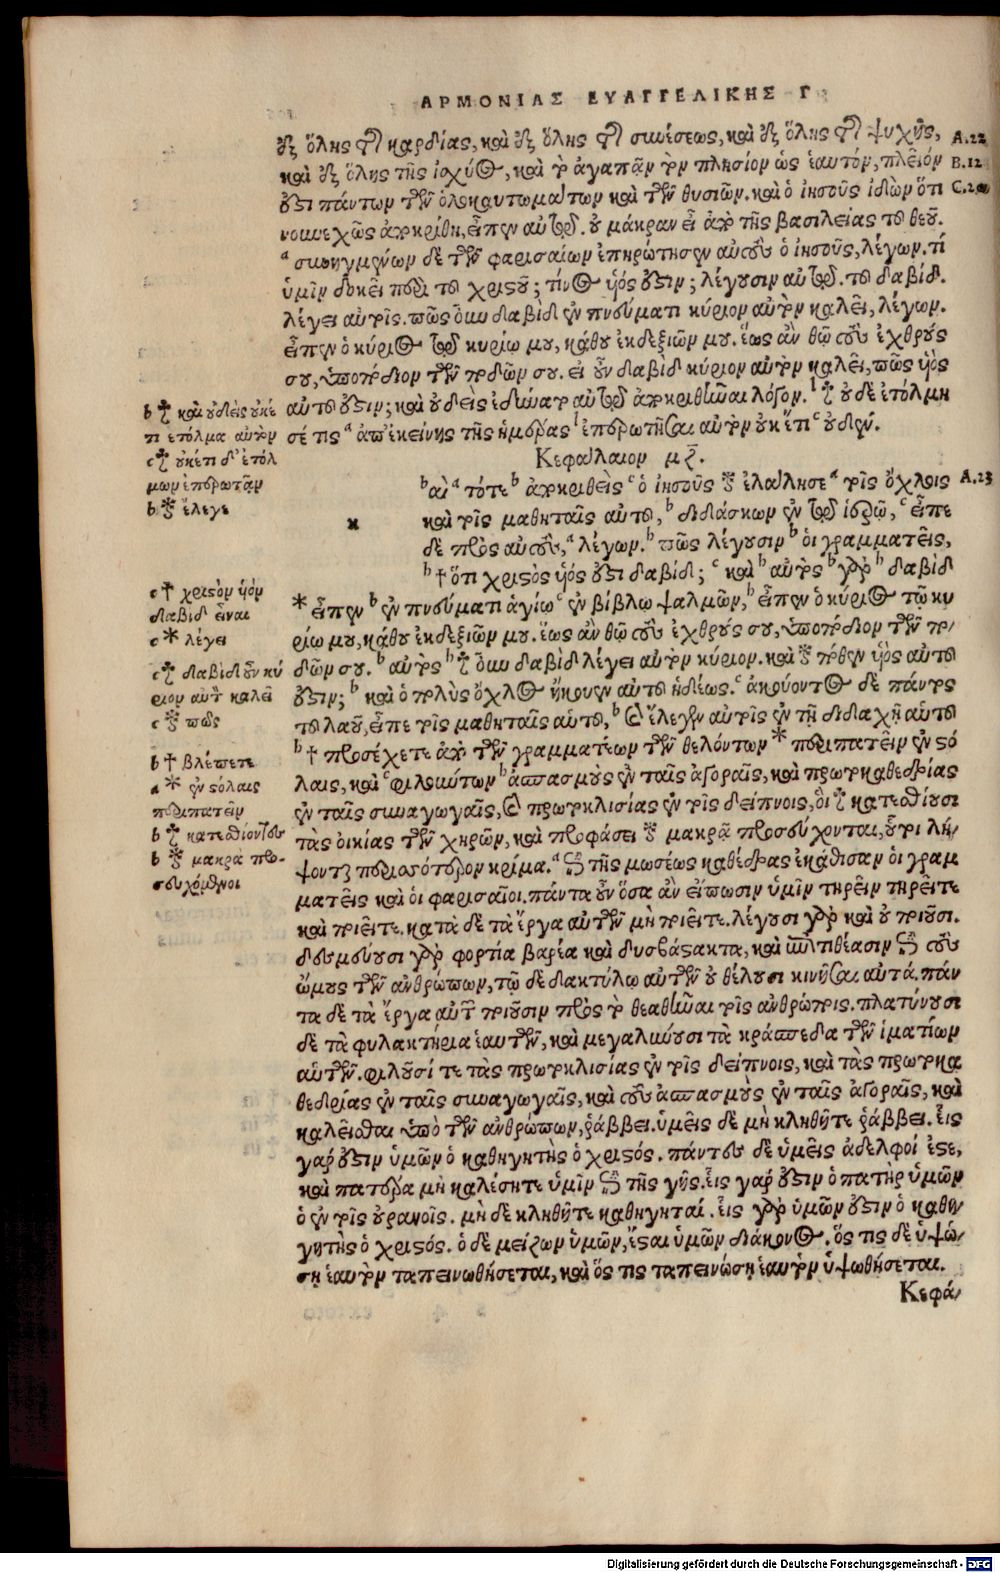 ΑΡΜΟΝΙΑΣ ΕΥΑΓΓΕΛΙΚΗΣ Γ
ἐξ ὅλης τῆς καρδίας, καὶ ἐξ ὅλης τῆς συνέσεως, καὶ ἐξ ὅλης τῆς ψυχῆς,
καὶ ἐξ ὅλης τῆς ἰσχύος, καὶ τὸ ἀγαπᾶν τὸν πλησίον ὡς ἑαυτόν, πλεῖόν
ἐστι πάντων τῶν ὁλοκαυτωμάτων καὶ τῶν θυσιῶν. καὶ ὁ ἰησοῦς ἰδὼν ὅτι
νουνεχῶς ἀπεκρίθη, εἶπεν αὐτῷ. οὐ μάκραν εἶ ἀπὸ τῆς βασιλείας τοῦ θεοῦ.
a συνηγμένων δὲ τῶν φαρισαίων ἐπηρώτησεν αὐτοὺς ὁ ἰησοῦς, λέγων. τί
ὑμῖν δοκεῖ περὶ τοῦ χριστοῦ; τίνος ὑός ἐστιν; λέγουσιν αὐτῷ. τοῦ δαβίδ.
λέγει αὐτοῖς. πῶς οὖν δαβὶδ ἐν πνεύματι κύριον αὐτὸν καλεῖ, λέγων.
εἶπεν ὁ κύριος τῷ κυρίῳ μου, κάθου ἐκδεξιῶν μου. ἕως ἂν θῶ τοὺς ἐχθρούς
σου, ὑποπόδιον τῶν ποδῶν σου. εἰ οὖν δαβὶδ κύριον αὐτὸν καλεῖ, πῶς ὑὸς
αὐτοῦ ἐστιν; καὶ οὐδεὶς ἐδύνατο αὐτῷ ἀποκριθῆναι λόγον. οὐδὲ ἐτόλμη
σέ τις a ἀπ' ἐκείνης τῆς ἡμέρας ἐπερωτῆσαι αὐτὸν οὐκ ἔτι c οὐδέν.
b καὶ οὐδεὶς οὐκέ
τι ἐτόλμα αὐτὸν
c οὐκέτι δ' ἐτόλ
μων ἐπερωτᾶν
b ἔλεγε
Κεφάλαιον
A.22
B.12
A.23
b αὶ a τότε b ἀποκριθεὶς c ὁ ἰησοῦς ἐλάλησε a τοῖς ὄχλοις
κ καὶ τοῖς μαθηταῖς αὐτοῦ, b διδάσκων ἐν τῷ ἱερῷ, c εἶπε
δὲ πρὸς αὐτοὺς, a λέγων. b πῶς λέγουσιν b οἱ γραμματεῖς,
b † ὅτι χριστὸς ὑός ἐστι δαβίδ; c καὶ b αὐτὸς b γὰρ b δαβὶδ
* εἶπεν b ἐν πνεύματι ἁγίῳ c ἐν βίβλῳ ψαλμῶν, b εἶπεν ὁ κύριος τῷ κυ
ρίῳ μου, κάθου ἐκδεξιῶν μου. ἕως ἂν θῶ τοὺς ἐχθρούς σου, ὑποπόδιον τῶν πο/
δῶν σου. b αὐτὸς b οὖν δαβὶδ λέγει αὐτὸν κύριον. καὶ πόθεν ὑὸς αὐτοῦ
ἐστιν; b καὶ ὁ πολὺς ὄχλος ἤκουεν αὐτοῦ ἡδέως. c ἀκούοντος δὲ πάντος
τοῦ λαοῦ, εἶπε τοῖς μαθηταῖς αὑτοῦ, b καὶ ἔλεγεν αὐτοῖς ἐν τῇ διδαχῇ αὑτοῦ
b † προσέχετε ἀπὸ τῶν γραμματέων τῶν θελόντων * περιπατεῖν ἐν στό
λαις, καὶ c φιλούντων b ἀσπασμοὺς ἐν ταῖς ἀγοραῖς, καὶ πρωτοκαθεδρίας
ἐν ταῖς συναγωγαῖς, καὶ πρωτοκλισίας ἐν τοῖς δείπνοις, οἳ κατεσθίουσι
τὰς οἰκίας τῶν χηρῶν, καὶ προφάσει μακρᾷ προσεύχονται, οὗτοι λή/
ψονται περισσότερον κρίμα. a ἐπὶ τῆς μωσέως καθέδρας ἐκάθισαν οἱ γραμ
ματεῖς καὶ οἱ φαρισαῖοι. πάντα οὖν ὅσα ἂν εἴπωσιν ὑμῖν τηρεῖν τηρεῖτε
καὶ ποιεῖτε. κατὰ δὲ τὰ ἔργα αὐτῶν μὴ ποιεῖτε. λέγουσι γὰρ καὶ οὐ ποιοῦσι.
δεσμεύουσι γὰρ φορτία βαρέα καὶ δυσβάστακτα, καὶ ἐπιτιθέασιν ἐπὶ τοὺς
ὤμους τῶν ἀνθρώπων, τῷ δὲ δακτύλῳ αὐτῶν οὐ θέλουσι κινῆσαι αὐτά. πάν
τα δὲ τὰ ἔργα αὐτῶν ποιοῦσιν πρὸς τὸ θεαθῆναι τοῖς ἀνθρώποις. πλατύνουσι
δὲ τὰ φυλακτήρια ἑαυτῶν, καὶ μεγαλύνουσι τὰ κράσπεδα τῶν ἱματίων
αὑτῶν. φιλοῦσί τε τὰς πρωτοκλισίας ἐν τοῖς δείπνοις, καὶ τὰς πρωτοκα
θεδρίας ἐν ταῖς συναγωγαῖς, καὶ τοὺς ἀσπασμοὺς ἐν ταῖς ἀγοραῖς, καὶ
καλεῖσθαι ὑπὸ τῶν ἀνθρώπων, ῥάββει. ὑμεῖς δὲ μὴ κληθῆτε ῥάββει. εἷς
γάρ ἐστιν ὑμῶν ὁ καθηγητὴς ὁ χριστός. πάντες δὲ ὑμεῖς ἀδελφοί ἐστε,
καὶ πατέρα μὴ καλέσητε ὑμῖν ἐπὶ τῆς γῆς. εἷς γάρ ἐστιν ὁ πατὴρ ὑμῶν
ὁ ἐν τοῖς οὐρανοῖς. μὴ δὲ κληθῆτε καθηγηταί. εἷς γὰρ ὑμῶν ἐστιν ὁ καθη/
γητὴς ὁ χριστός. ὁ δὲ μείζων ὑμῶν, ἔσται ὑμῶν διάκονος. ὅς τις δὲ ὑψώ/
σῃ ἑαυτὸν ταπεινωθήσεται, καὶ ὅς τις ταπεινώσῃ ἑαυτὸν ὑψωθήσεται.
Κεφά/
c † χριστὸν ὑὸν
δαβὶδ εἶναι
c * λέγει
c δαβὶδ οὖν κύ
ριον αὐτὸν καλεῖ
c πῶς
b † βλέπετε
a * ἐν στόλαις
περιπατεῖν
b κατεσθίοντες
b μακρὰ προ-
σευχόμενοι
Digitalisierung gefördert durch die Deutsche Forschungsgemeinschaft - DFG